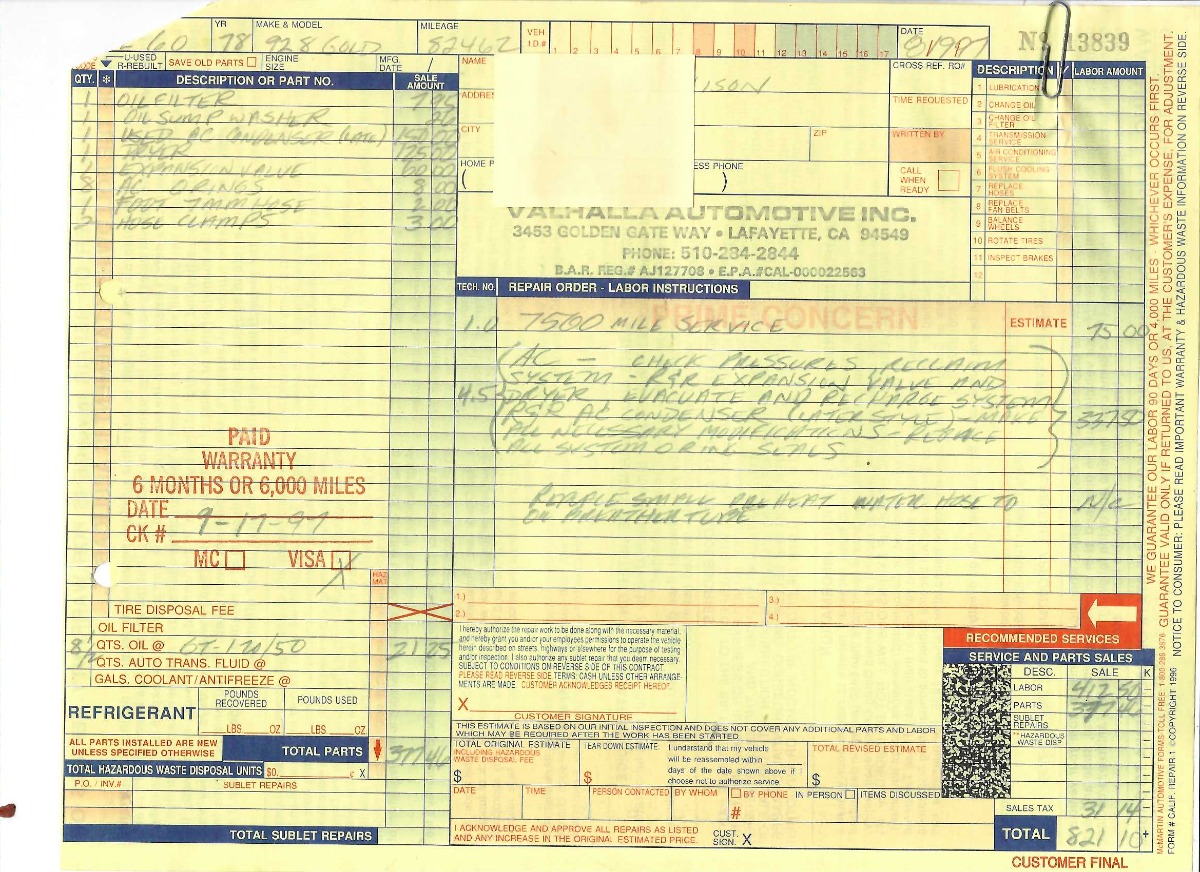 YR
MAKE & MODEL
MILEAGE
VEH I.D.#
DATE
Nº 13839
60 78 928 GOLD 82462
1 2 3 4 5 6 7 8 9 10 11 12 13 14 15 16 17
U-USED
R-REBUILT
SAVE OLD PARTS
ENGINE SIZE
MFG. DATE
QTY. * DESCRIPTION OR PART NO. SALE AMOUNT
1 OIL FILTER
1 OIL SUMP WASHER
1 USED AC CONDENSER (LATE) 150.00
1 DRYER 125.00
1 EXPANSION VALVE 60.00
8 AC O RINGS 8.00
1 FOOT 7MM HOSE 2.00
2 HOSE CLAMPS 3.00
PAID
WARRANTY
6 MONTHS OR 6,000 MILES
DATE 9-17-97
CK #
MC VISA X
HAZ MAT
TIRE DISPOSAL FEE
OIL FILTER
QTS. OIL @ GT 20/50 21 25
QTS. AUTO TRANS. FLUID @
GALS. COOLANT/ANTIFREEZE @
REFRIGERANT
POUNDS RECOVERED
POUNDS USED
LBS OZ
LBS OZ
ALL PARTS INSTALLED ARE NEW
UNLESS SPECIFIED OTHERWISE
TOTAL PARTS 377 46
TOTAL HAZARDOUS WASTE DISPOSAL UNITS $0. ¢ X
P.O. / INV.# SUBLET REPAIRS
TOTAL SUBLET REPAIRS
NAME
ISON
CITY
ZIP
HOME P
SS PHONE
( )
CROSS REF. RO#
TIME REQUESTED
WRITTEN BY
CALL WHEN READY
VALHALLA AUTOMOTIVE INC.
3453 GOLDEN GATE WAY • LAFAYETTE, CA 94549
PHONE: 510-284-2844
B.A.R. REG.# AJ127708 • E.P.A.#CAL-000022563
DESCRIPTION LABOR AMOUNT
1 LUBRICATION
2 CHANGE OIL
3 CHANGE OIL FILTER
4 TRANSMISSION SERVICE
5 AIR CONDITIONING SERVICE
6 FLUSH COOLING SYSTEM
7 REPLACE HOSES
8 REPLACE FAN BELTS
9 BALANCE WHEELS
10 ROTATE TIRES
11 INSPECT BRAKES
12
TECH. NO. REPAIR ORDER - LABOR INSTRUCTIONS
PRIME CONCERN
ESTIMATE
1.0 7500 MILE SERVICE 75 00
AC - CHECK PRESSURES, RECLAIM
SYSTEM - R&R EXPANSION VALVE AND
4.5 DRYER, EVACUATE AND RECHARGE SYSTEM
R&R AC CONDENSER (LATER STYLE) - MAKE 337 50
ALL NECESSARY MODIFICATIONS REPLACE
ALL SYSTEM O RING SEALS
SMALL WATER HOSE TO N/C
OIL BREATHER TUBE
1.)
2.)
3.)
4.)
RECOMMENDED SERVICES
I hereby authorize the repair work to be done along with the necessary material,
and hereby grant you and/or your employees permissions to operate the vehicle
herein described on streets, highways or elsewhere for the purpose of testing
and/or inspection. I also authorize any sublet repair that you deem necessary.
SUBJECT TO CONDITIONS ON REVERSE SIDE OF THIS CONTRACT
PLEASE READ REVERSE SIDE TERMS: CASH UNLESS OTHER ARRANGE-
MENTS ARE MADE. CUSTOMER ACKNOWLEDGES RECEIPT HEREOF.
X
CUSTOMER SIGNATURE
THIS ESTIMATE IS BASED ON OUR INITIAL INSPECTION AND DOES NOT COVER ANY ADDITIONAL PARTS AND LABOR
WHICH MAY BE REQUIRED AFTER THE WORK HAS BEEN STARTED
TOTAL ORIGINAL ESTIMATE
INCLUDING HAZARDOUS WASTE DISPOSAL FEE
$
TEAR DOWN ESTIMATE
$
I understand that my vehicle
will be reassembled within
days of the date shown above if
choose not to authorize service
TOTAL REVISED ESTIMATE
$
DATE TIME PERSON CONTACTED BY WHOM BY PHONE IN PERSON ITEMS DISCUSSED
#
I ACKNOWLEDGE AND APPROVE ALL REPAIRS AS LISTED
AND ANY INCREASE IN THE ORIGINAL ESTIMATED PRICE.
CUST. SIGN. X
SERVICE AND PARTS SALES
DESC. SALE K
LABOR 412 50
PARTS 377 46
SUBLET REPAIRS
**HAZARDOUS WASTE DISP
SALES TAX 31 14
TOTAL 821 10
CUSTOMER FINAL
WE GUARANTEE OUR LABOR 90 DAYS OR 4,000 MILES WHICHEVER OCCURS FIRST.
GUARANTEE VALID ONLY IF RETURNED TO US, AT THE CUSTOMER'S EXPENSE, FOR ADJUSTMENT.
NOTICE TO CONSUMER: PLEASE READ IMPORTANT WARRANTY & HAZARDOUS WASTE INFORMATION ON REVERSE SIDE.
McMARTIN AUTOMOTIVE FORMS TOLL FREE
FORM # CALIF. REPAIR 1 © COPYRIGHT 1996